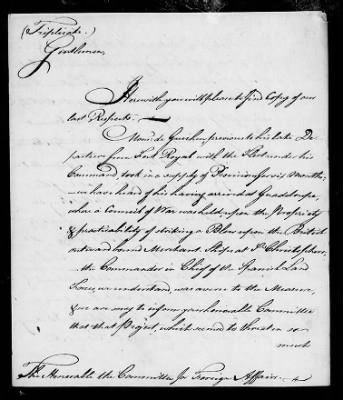 (Triplicate.)
Gentlemen
Herewith you will please to find Copy of our
last Respects. —
Monsr. de Guichen previous to his late De-
parture from Fort Royal with the Fleet under his
Command, took in a supply of Provisions for six months
— we have heard of his having arrived at Guadaloupe,
where a Council of War was held upon the Propriety
& practicability of striking a Blow upon the British
outward bound Merchant Ships at St. Christophers,
the Commander in Chief of the Spanish Land
Forces, we understand, was averse to the Measure,
& we are sorry to inform your honorable Committee
that that Project, which seemed to threaten so
much
The Honorable the Committee for Foreign Affairs.